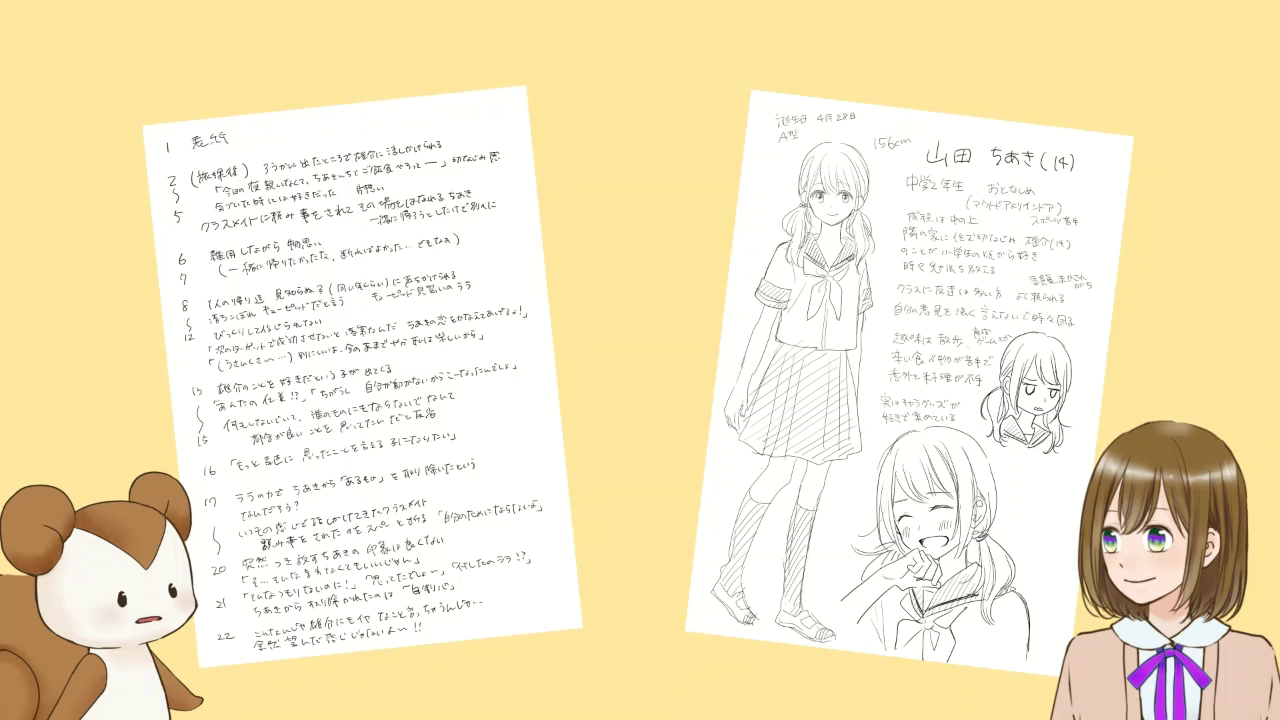 1 表紙
2 (放課後) ろうかに出たところで雄介に話しかけられる
「今日の夜 親いなくて、ちあきんちとご飯食べろって ー」幼なじみ
気づいた時には好きだった 片想い
5 クラスメイトに頼み事をされて その場をはなれるちあき
一緒に帰ろうとしたけど別々に
6 雑用しながら 物思い
7 (一緒に帰りたかったな、断ればよかった… でもなぁ)
8 1人の帰り道 見知らぬ子(同い年くらい)に声をかけられる
落ちこぼれ キューピッドだと言う キューピッド見習いのララ
12 びっくりして信じられない
「次のターゲットで成功させないと落第なんだ ちあきの恋をかなえてあげるよ!」
「(うさんくさい…) 別にいいよ、今のままでやか 私は楽しいから」
13 雄介のことを好きだという子が出てくる
「あんたの仕業!?」「ちがうし 自分が動かないからこーなったんでしょ」
何もしないでいて、誰のものにもならないでなんて
15 都合が良いことを思ってたんだと反省
16 「もっと素直に 思ったことを言える子になりたい」
17 ララの力で ちあきから「あるもの」を取り除いたという
なんだろう?
いつもの感じで話しかけてきたクラスメイト
頼み事をされたのをスパッと断る「自分のためにならないよ」
20 突然 つき放すちあきの 印象は良くない
「そ…そんな言い方しなくてもいいじゃん」
「そんなつもりないのに!」「思ってたでしょ〜」「何したのララ!?」
21 ちあきから 取り除かれたのは「自制心」
22 こんなんじゃ雄介にもイヤなこと言っちゃうんじゃ…
全然望んだ感じじゃないよ〜!!
誕生日 4月28日
A型
156cm
山田 ちあき(14)
中学2年生 おとなしめ
(アウトドアよりインドア)
成績は中の上 スポーツ苦手
隣の家に住む幼なじみ 雄介(14)
のことが小学生の頃から好き
時々勉強を教える
クラスに友達は多い方 よく頼られる
自分の意見を強く言えないで時々困る
趣味は 散歩、
辛い食べ物が苦手で
意外と料理が下手
実はキャラグッズが
好きで集めている